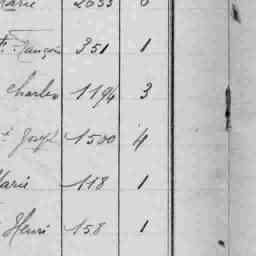 Marie 2653 6
François 351 1
Charles 1194 3
Joseph 1500 4
Marie 118 1
Henri 158 1